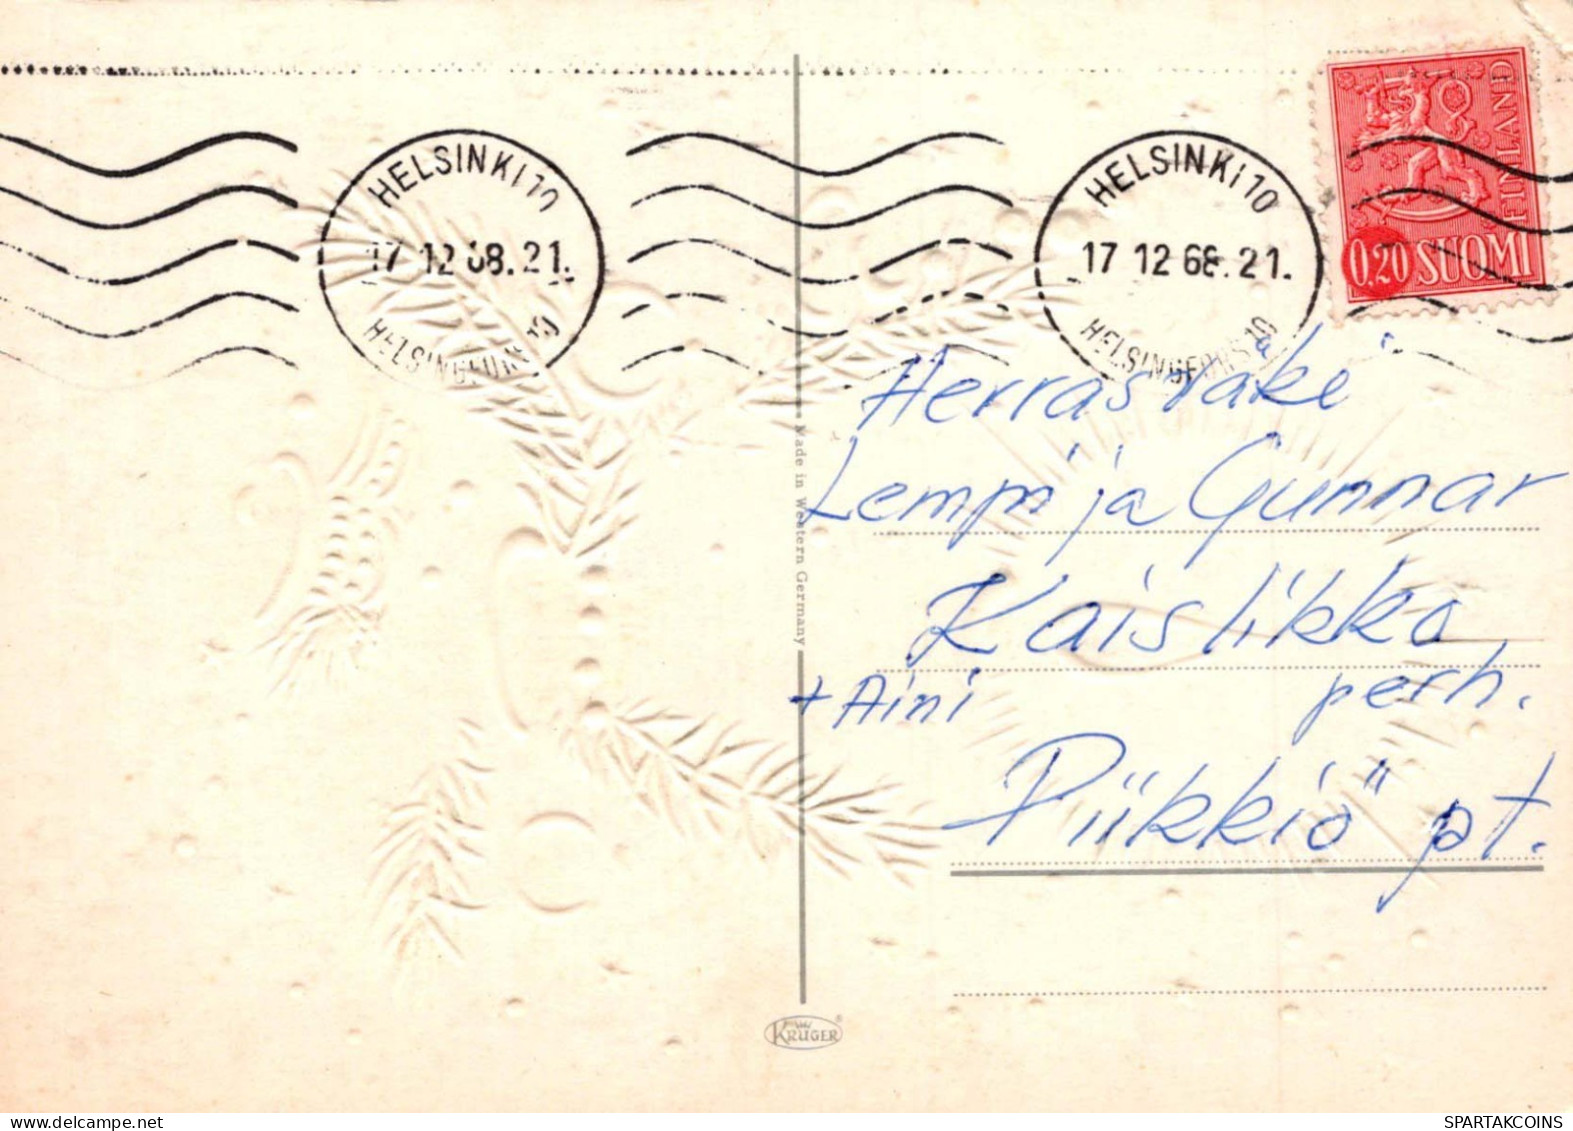 HELSINKI 10
17.12.68.21.
HELSINGFORS 10
HELSINKI 10
17.12.68.21.
HELSINGFORS 10
FINLAND
0,20 SUOMI
Herrasväki
Lempi ja Gunnar
Kaislikko
+ Aini perh.
Piikkiö pt.
Made in Western Germany
KRÜGER
WWW.DELCAMPE.NET
SPARTAKCOINS